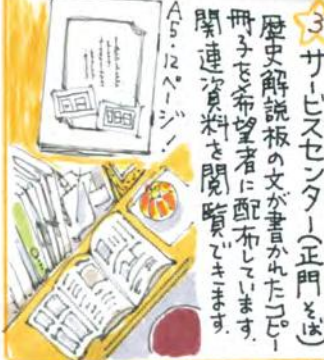 3 サービスセンター(正門そば)
歴史解説板の文が書かれたコピー
冊子を希望者に配布しています。
関連資料を閲覧できます。
A5・12ページ!